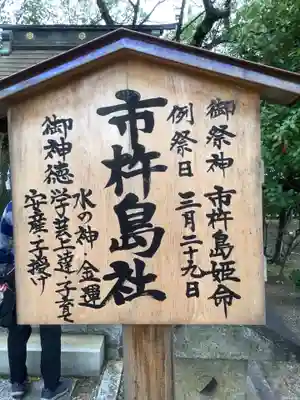 御祭神 市杵島姫命
例祭日 三月二十九日
市杵島社
水の神 金運
御神徳 学芸上達 子育
安産 子授け